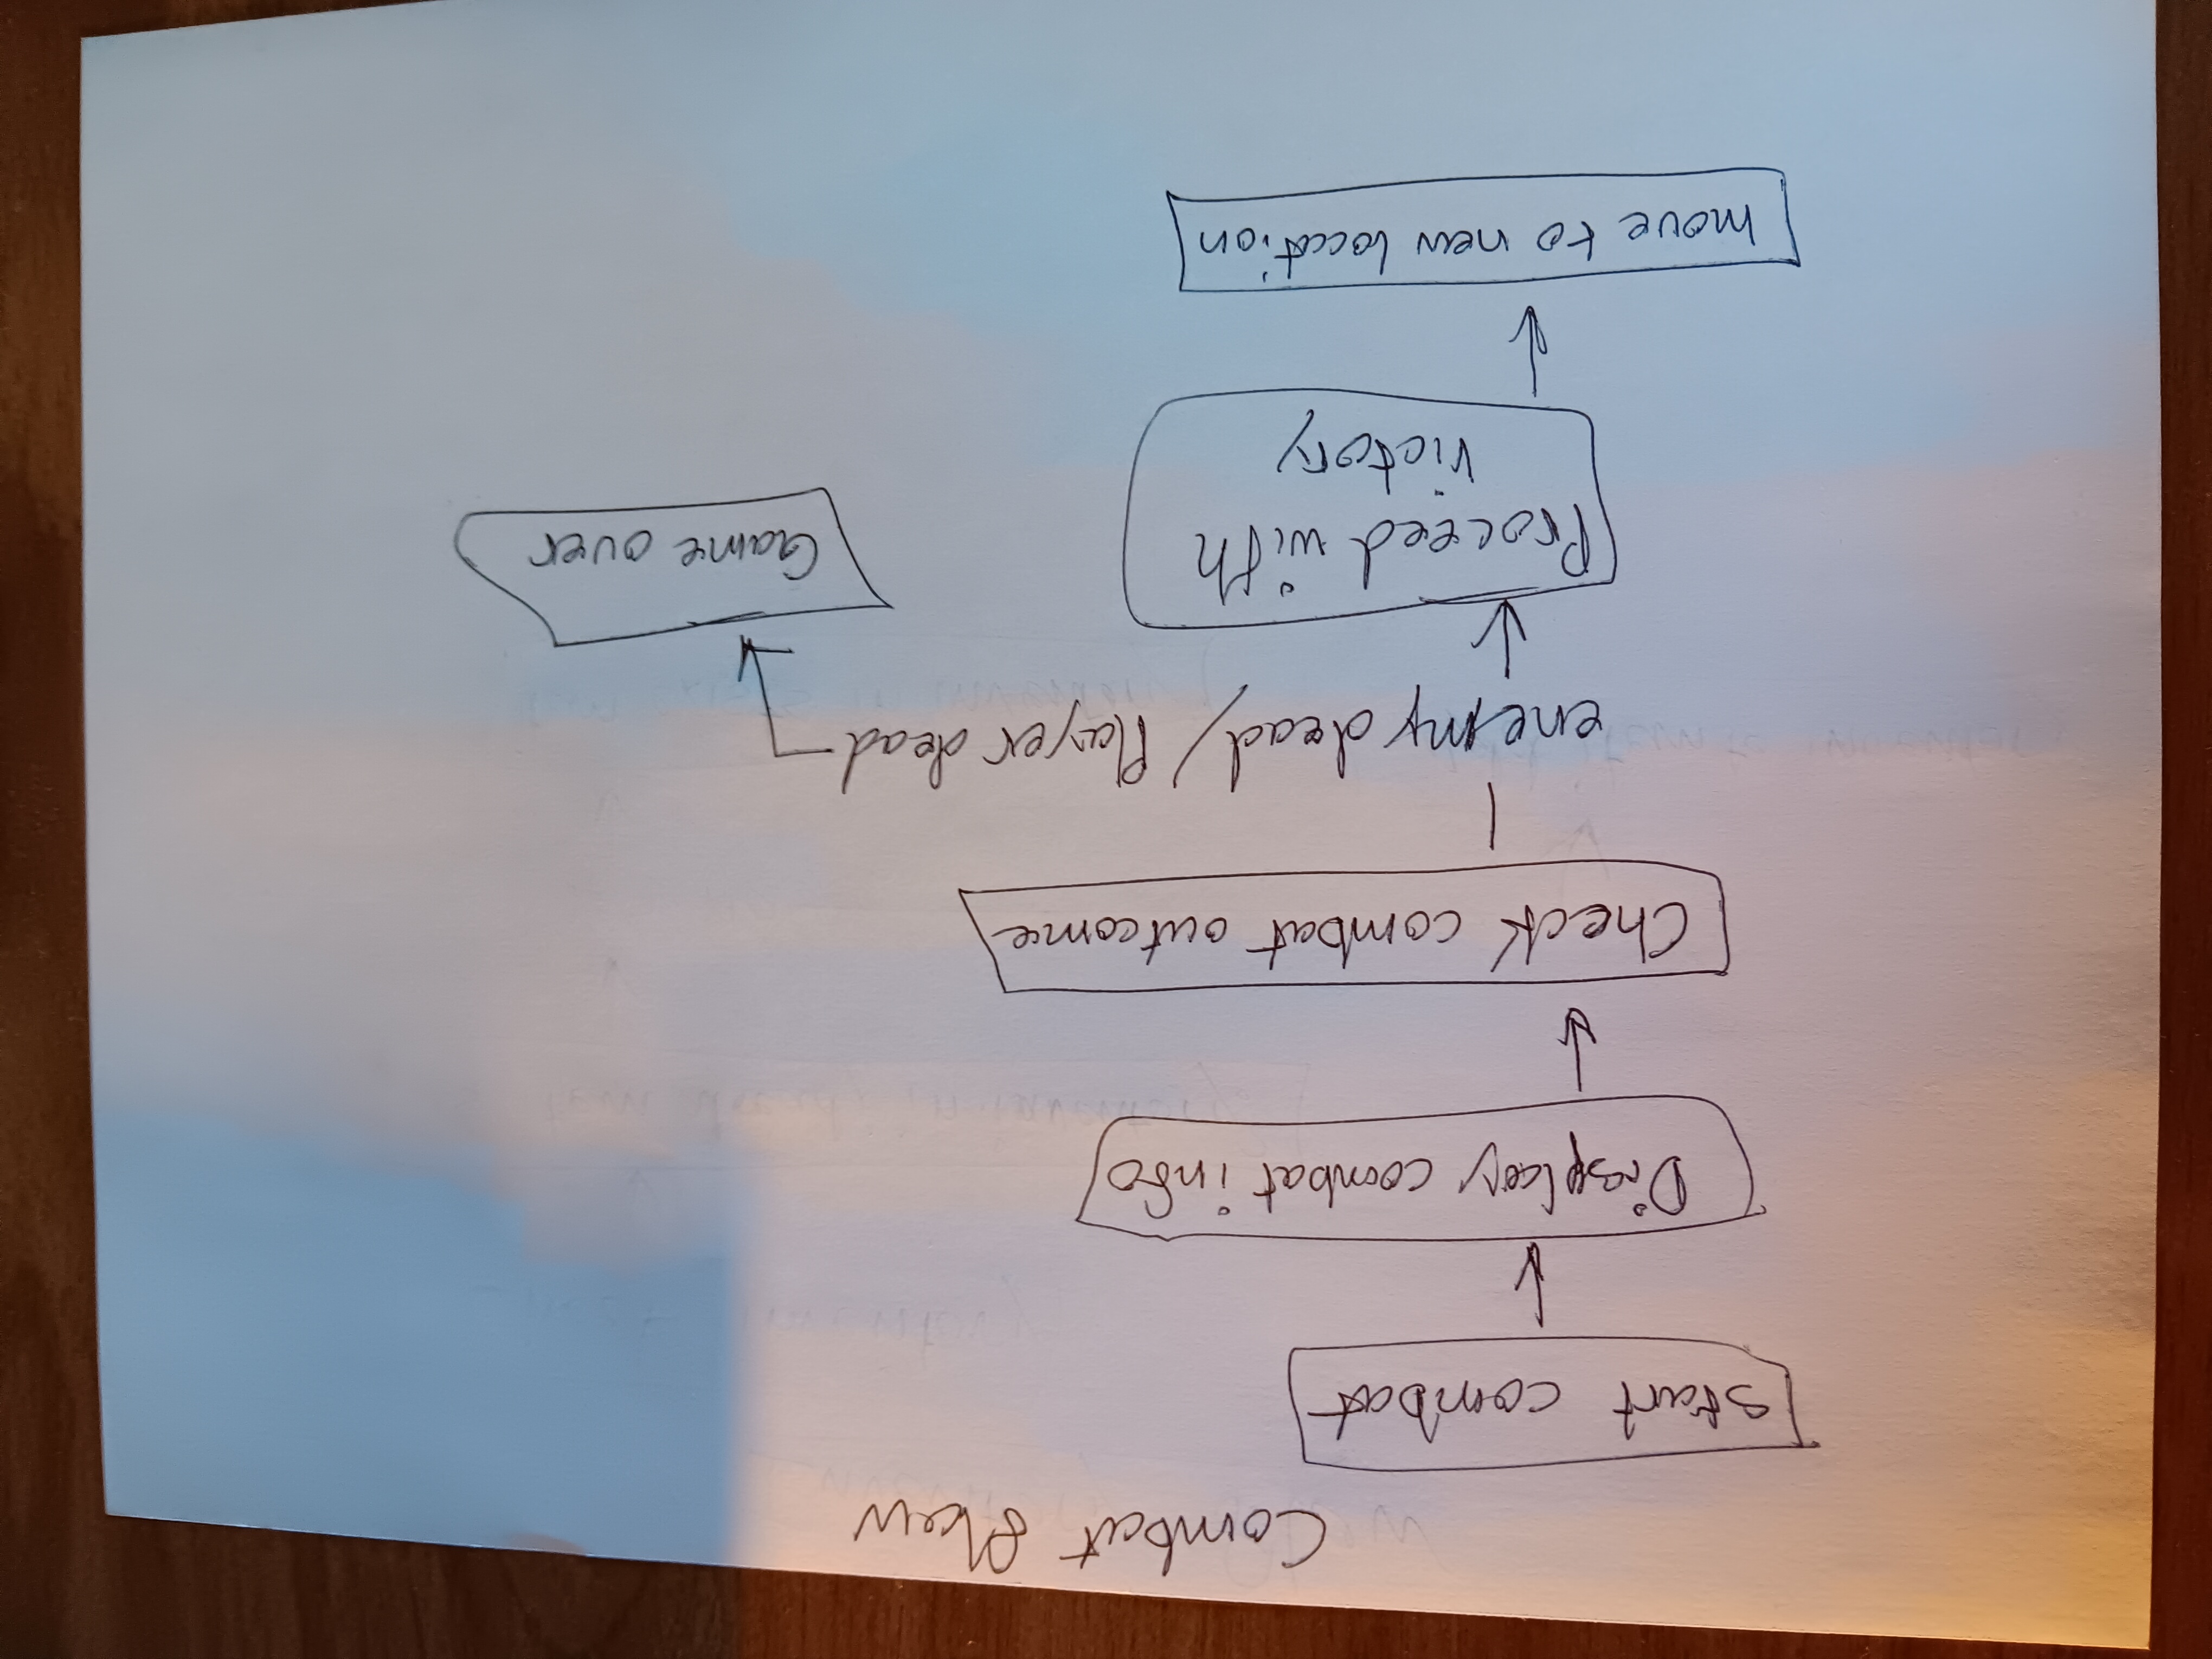 Combat flow
start combat
Display combat info
Check combat outcome
enemy dead / Player dead
Proceed with
victory
Game over
move to new location